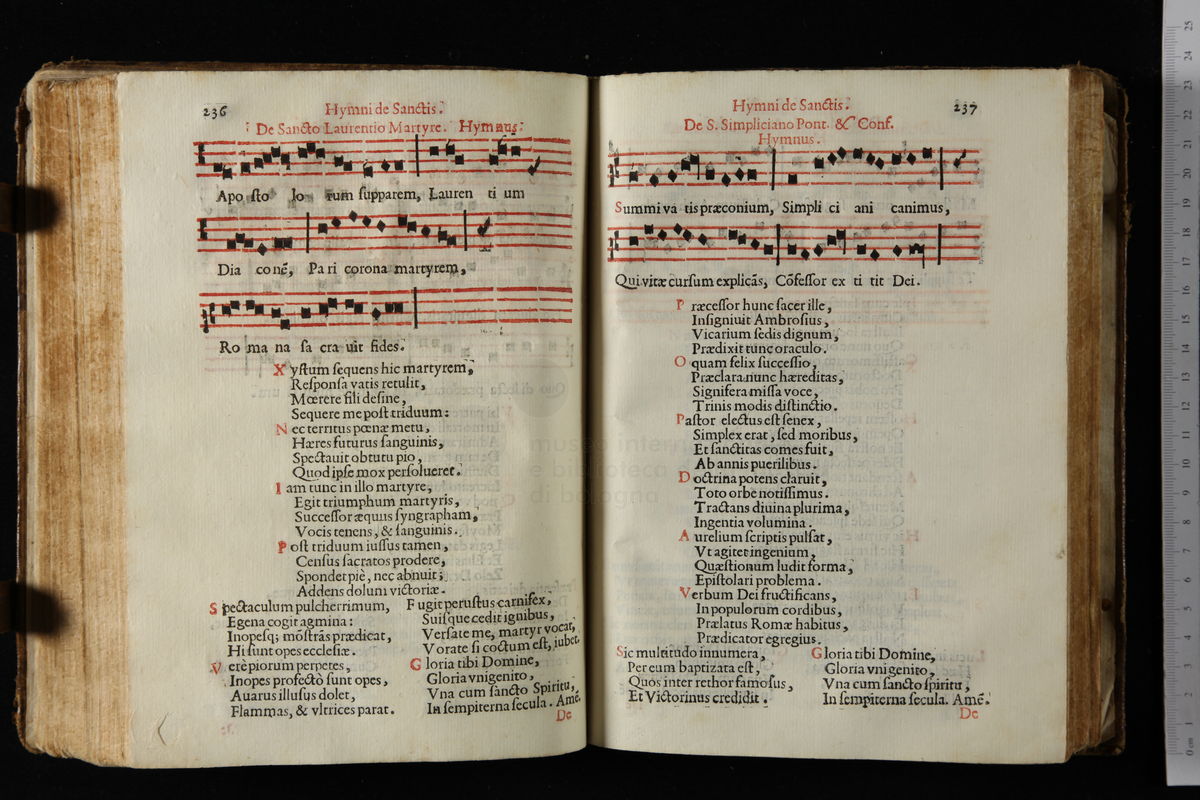 236
Hymni de Sanctis.
De Sancto Laurentio Martyre. Hymnus.
Apo sto lo rum supparem, Lauren ti um
Dia conẽ, Pa ri corona martyrem,
Ro ma na sa cra uit fides.
Xystum sequens hic martyrem,
Responsa vatis retulit,
Mœrere fili desine,
Sequere me post triduum:
Nec territus pœnæ metu,
Hæres futurus sanguinis,
Spectauit obtutu pio,
Quod ipse mox persolueret.
Iam tunc in illo martyre,
Egit triumphum martyris,
Successor æquus syngrapham,
Vocis tenens, & sanguinis.
Post triduum iussus tamen,
Census sacratos prodere,
Spondet piè, nec abnuit;
Addens dolum victoriæ.
Spectaculum pulcherrimum,
Egena cogit agmina:
Inopesq; mõstrãs prædicat,
Hi sunt opes ecclesiæ.
Verè piorum perpetes,
Inopes profectò sunt opes,
Auarus illusus dolet,
Flammas, & vltrices parat.
Fugit perustus carnifex,
Suisque cedit ignibus,
Versate me, martyr vocat,
Vorate si coctum est, iubet.
Gloria tibi Domine,
Gloria vnigenito,
Vna cum sancto Spiritu,
In sempiterna secula. Amẽ.
De
237
Hymni de Sanctis.
De S. Simpliciano Pont. & Conf.
Hymnus.
Summi va tis præconium, Simpli ci ani canimus,
Qui vitæ cursum explicãs, Cõfessor ex ti tit Dei.
Præcessor hunc sacer ille,
Insigniuit Ambrosius,
Vicarium sedis dignum,
Prædixit tunc oraculo.
O quam felix successio,
Præclara nunc hæreditas,
Signifera missa voce,
Trinis modis distinctio.
Pastor electus est senex,
Simplex erat, sed moribus,
Et sanctitas comes fuit,
Ab annis puerilibus.
Doctrina potens claruit,
Toto orbe notissimus.
Tractans diuina plurima,
Ingentia volumina.
Aurelium scriptis pulsat,
Vt agitet ingenium,
Quæstionum ludit forma,
Epistolari problema.
Verbum Dei fructificans,
In populorum cordibus,
Prælatus Romæ habitus,
Prædicator egregius.
Sic multitudo innumera,
Per eum baptizata est,
Quos inter rethor famosus,
Et Victorinus credidit.
Gloria tibi Domine,
Gloria vnigenito,
Vna cum sancto spiritu,
In sempiterna secula. Amẽ.
De